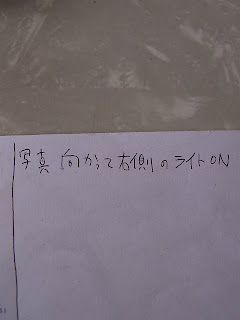 写真 向かって右側のライトON